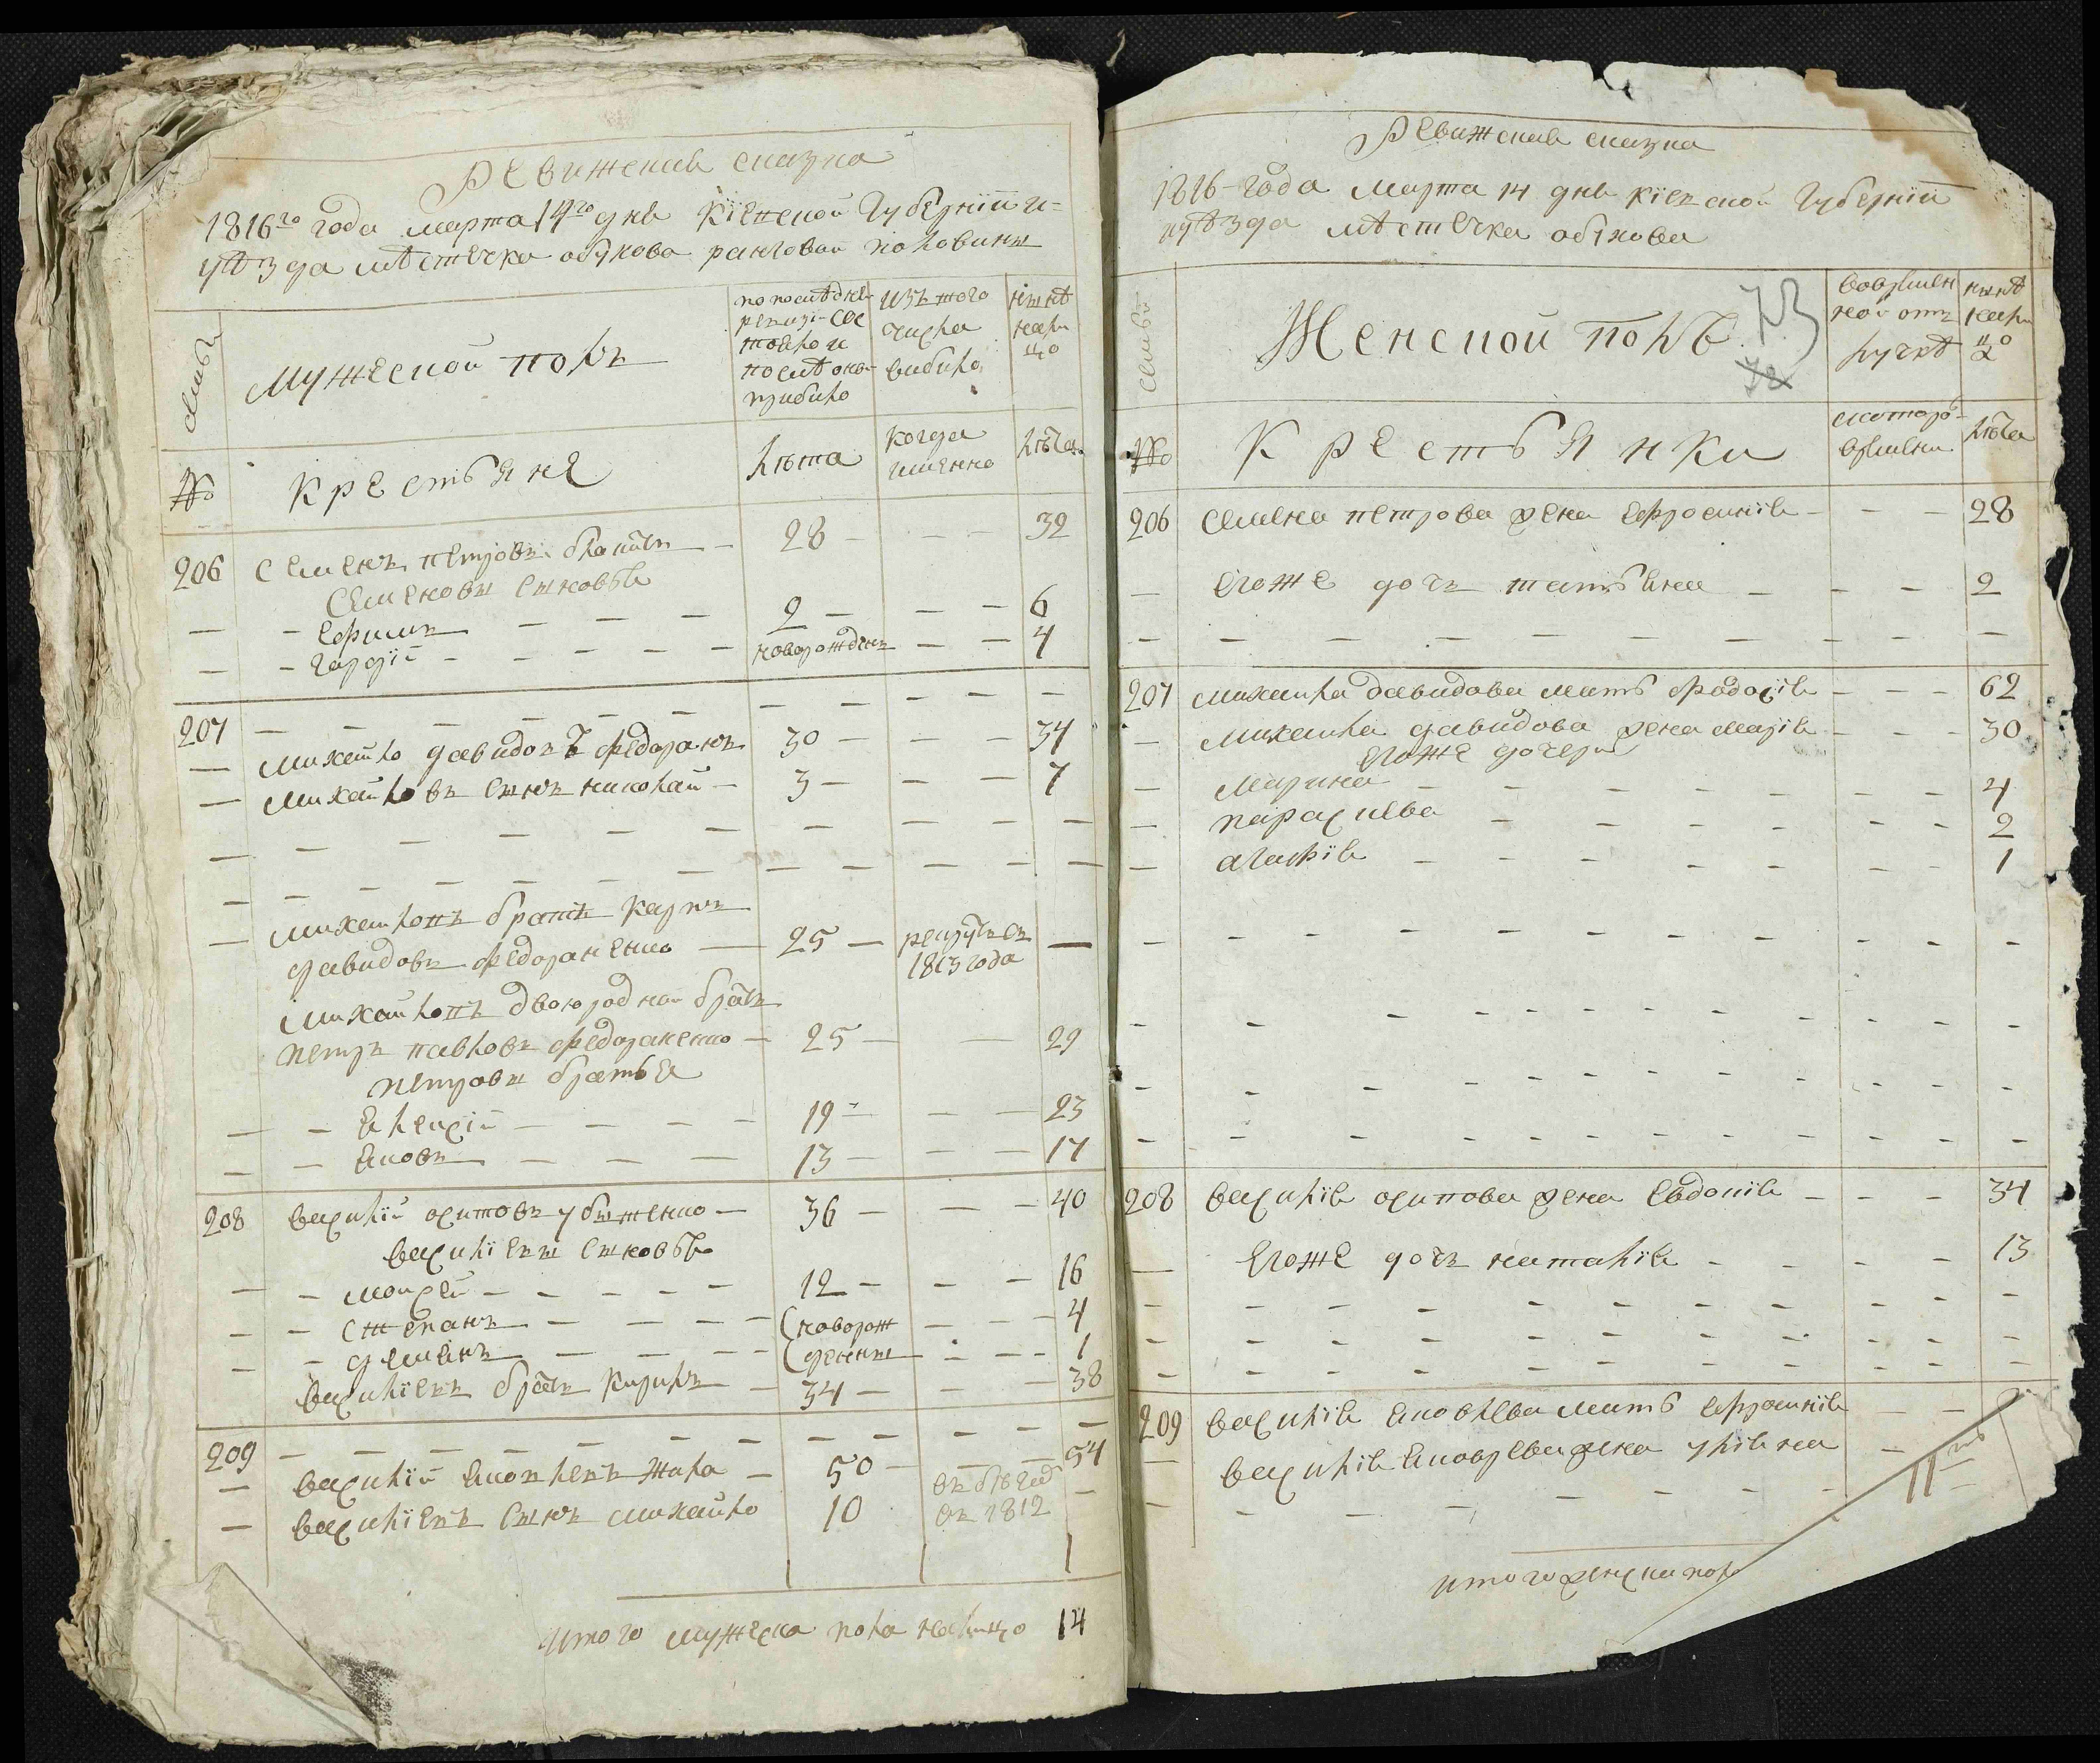 Ревижская сказка
1816го года марта 14го дня Кіевской Губерніи и
уѣзда мѣстечка обухова ранговой половины
семьи
Мужеской полъ
по послѣдней
ревизіи сос
тояло и
послѣ оной
прибыло
изъ того
числа
выбыло
нынѣ
нали
цо
№
Крестьяне
лѣта
когда
именно
лѣта
206 Семенъ петровъ - 28 - - - 32
Семеновы сыновья
- - Ефимъ - - - 2 - - - 6
- - Гордій - - - - новорожденъ - - 4
207 - - - - - - - - - -
- михайло давидовъ федоранъ 30 - - - 34
- михайловъ сынъ николай - 3 - - - 7
- - - - - - - - - -
- - - - - - - - - - -
- михайловъ братъ карпъ
давидовъ федораненко - 25 - рекрутъ въ -
1813 года
михайловъ двоюродной братъ
петръ павловъ федораненко - 25 - - 29
петровы братья
- - Алексій - - - - 19 - - - 23
- - Яковъ - - - 13 - - - 17
208 василій осиповъ - 36 - - - 40
василіевы сыновья
- - мойсей - - - - - 12 - - - 16
- - степанъ - - - - (новорож - - - 4
- - демянъ - - - - (денны - - - 1
василіевъ братъ Кирилъ - 34 - - - 38
209 - - - - - - - - - - -
- василій Яковлевъ - 50 - - 54
- василіевъ сынъ михайло 10 въ 1812 -
Итого мужеска пола налицо 14
Ревижская сказка
1816 года марта 14 дня кіевской Губерніи
и уѣзда мѣстечка обухова
73
72
семьи
Женской полъ
во времен
ной от
лучкѣ
нынѣ
нали
цо
№
Крестьянки
с котораго
времени
лѣта
206 Семена петрова жена ефросинія - - - 28
- егоже дочь татьяна - - - 2
- - - - - - - - - - -
207 михайла давидова мать феодосія - - - 62
- михайла давидова жена марія - - - 30
егоже дочери
- Марина - - - - - - - 4
- параскева - - - - - - 2
- агафія - - - - - - - 1
- - - - - - - - - - -
- - - - - - - - - - -
- - - - - - - - - - -
- - - - - - - - - - -
208 василія осипова жена Евдокія - - - 34
- Егоже дочь наталія - - - - 13
- - - - - - - - - - -
- - - - - - - - - - -
- - - - - - - - - - -
209 василія Яковлева мать ефросинія -
- василія Яковлева жена уліяна -
- - - - - - - -
11
итого женска пола